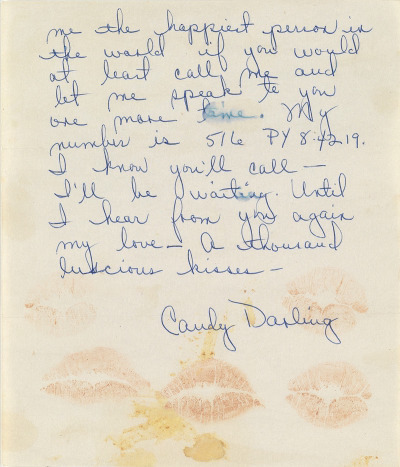 me the happiest person in
the world if you would
at least call me and
let me speak to you
one more time. My
number is 516 PY 8-4219.
I know you'll call —
I'll be waiting. Until
I hear from you again
my love — A thousand
luscious kisses —
Candy Darling